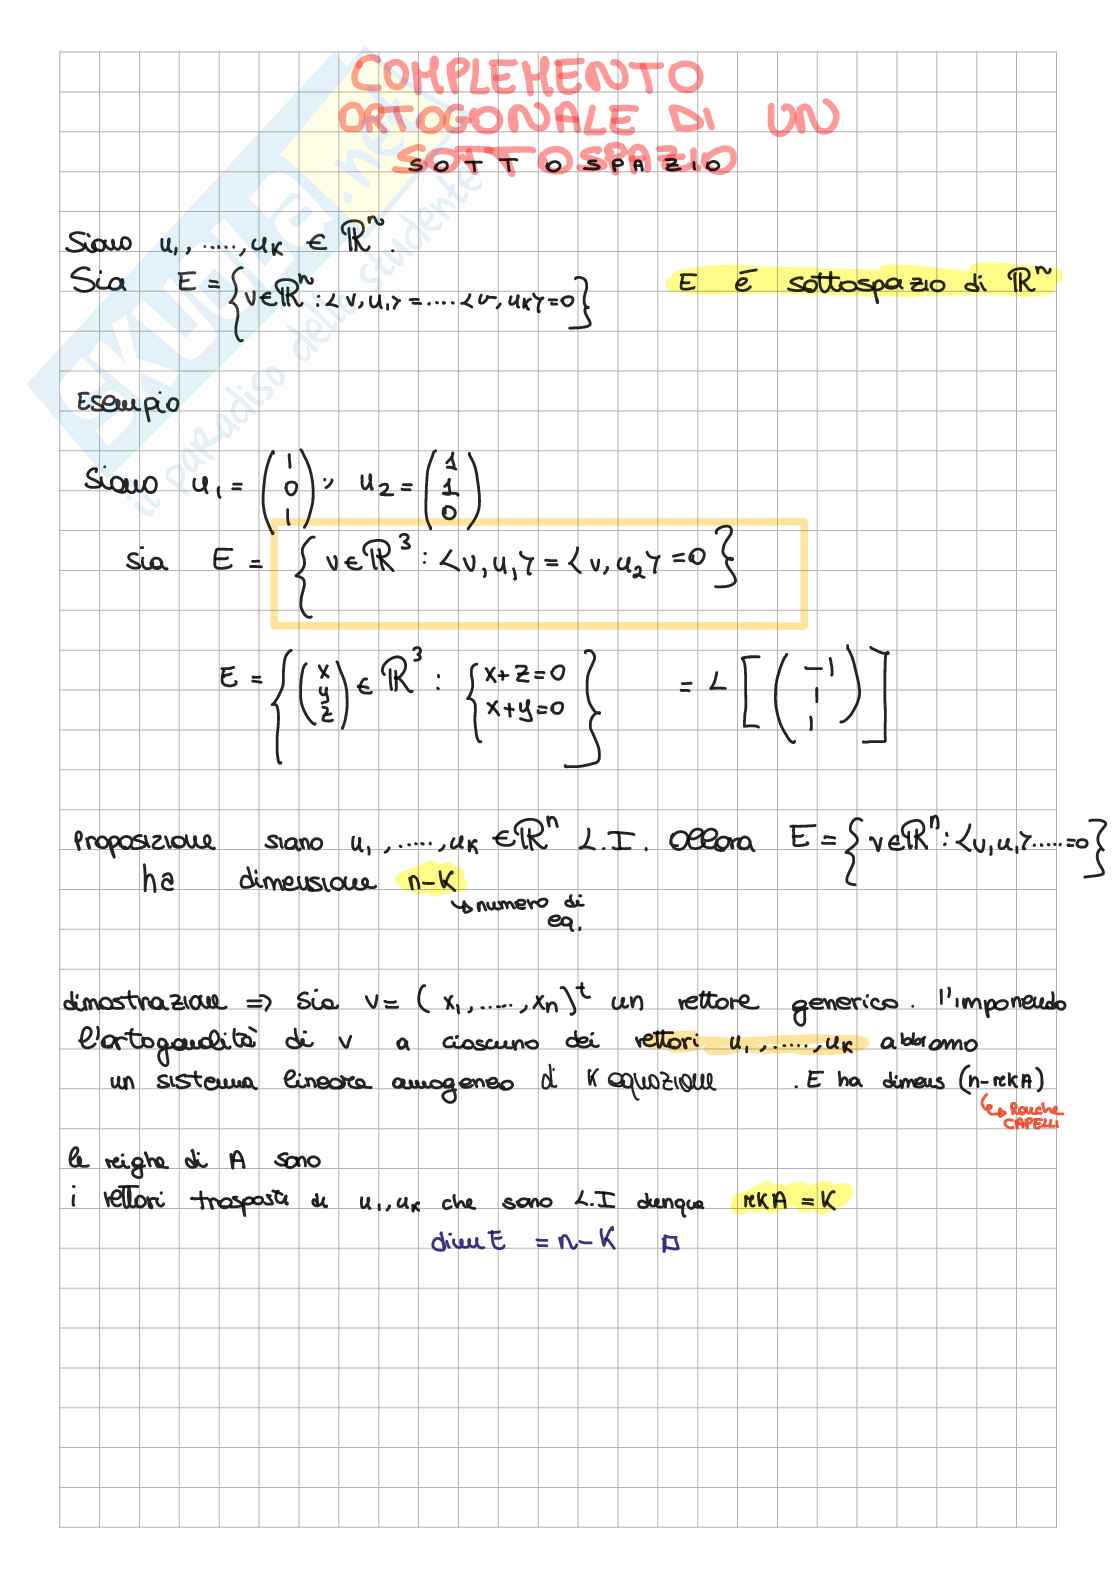 COMPLEMENTO
ORTOGONALE DI UN
SOTTOSPAZIO
Siano u₁, ....., uₖ ∈ ℝⁿ.
Sia E = { v ∈ ℝⁿ : <v, u₁> = .... <v, uₖ> = 0 } E é sottospazio di ℝⁿ
Esempio
Siano u₁ = (1 0 1), u₂ = (1 1 0)
sia E = { v ∈ ℝ³ : <v, u₁> = <v, u₂> = 0 }
E = { (x y z) ∈ ℝ³ : { x+z=0 x+y=0 } = L [ (-1 1 1) ]
Proposizione siano u₁, ....., uₖ ∈ ℝⁿ L.I. allora E = { v ∈ ℝⁿ : <v, u₁> ..... = 0 }
ha dimensione n-K
↳ numero di
eq.
dimostrazione => Sia v = (x₁, ....., xₙ)ᵗ un vettore generico. l'imponendo
l'ortogonalità di v a ciascuno dei vettori u₁, ....., uₖ abbiamo
un sistema lineare omogeneo di K equazione . E ha dimens (n-rkA)
↳ Rouche
CAPELLI
le reighe di A sono
i vettori trasposti di u₁, uₖ che sono L.I dunque rkA = K
dim E = n-K □
SKUOLA.net
il paradiso dello studente